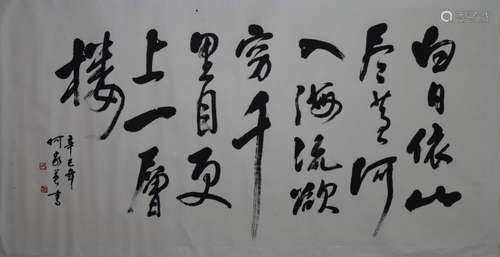 白日依山
尽黄河
入海流欲
穷千
里目更
上一層
楼
辛巳年